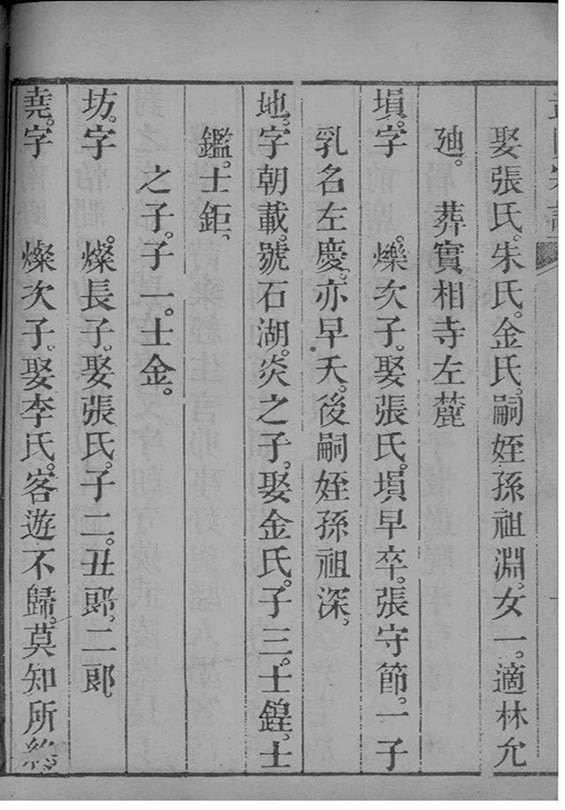 娶張氏。朱氏。金氏。嗣姪孫祖淵。女一。適林允
廸。葬實相寺左麓
塤。字　爍次子。娶張氏。塤早卒。張守節。一子
乳名左慶。亦早夭。後嗣姪孫祖深。
地。字朝載。號石湖。炎之子。娶金氏。子三。士鍠。士
鑑。士鉅。
之子。子一。士金。
坊。字　燦長子。娶張氏。子二。丑郎。二郎。
堯。字　燦次子。娶李氏。客遊不歸。莫知所終